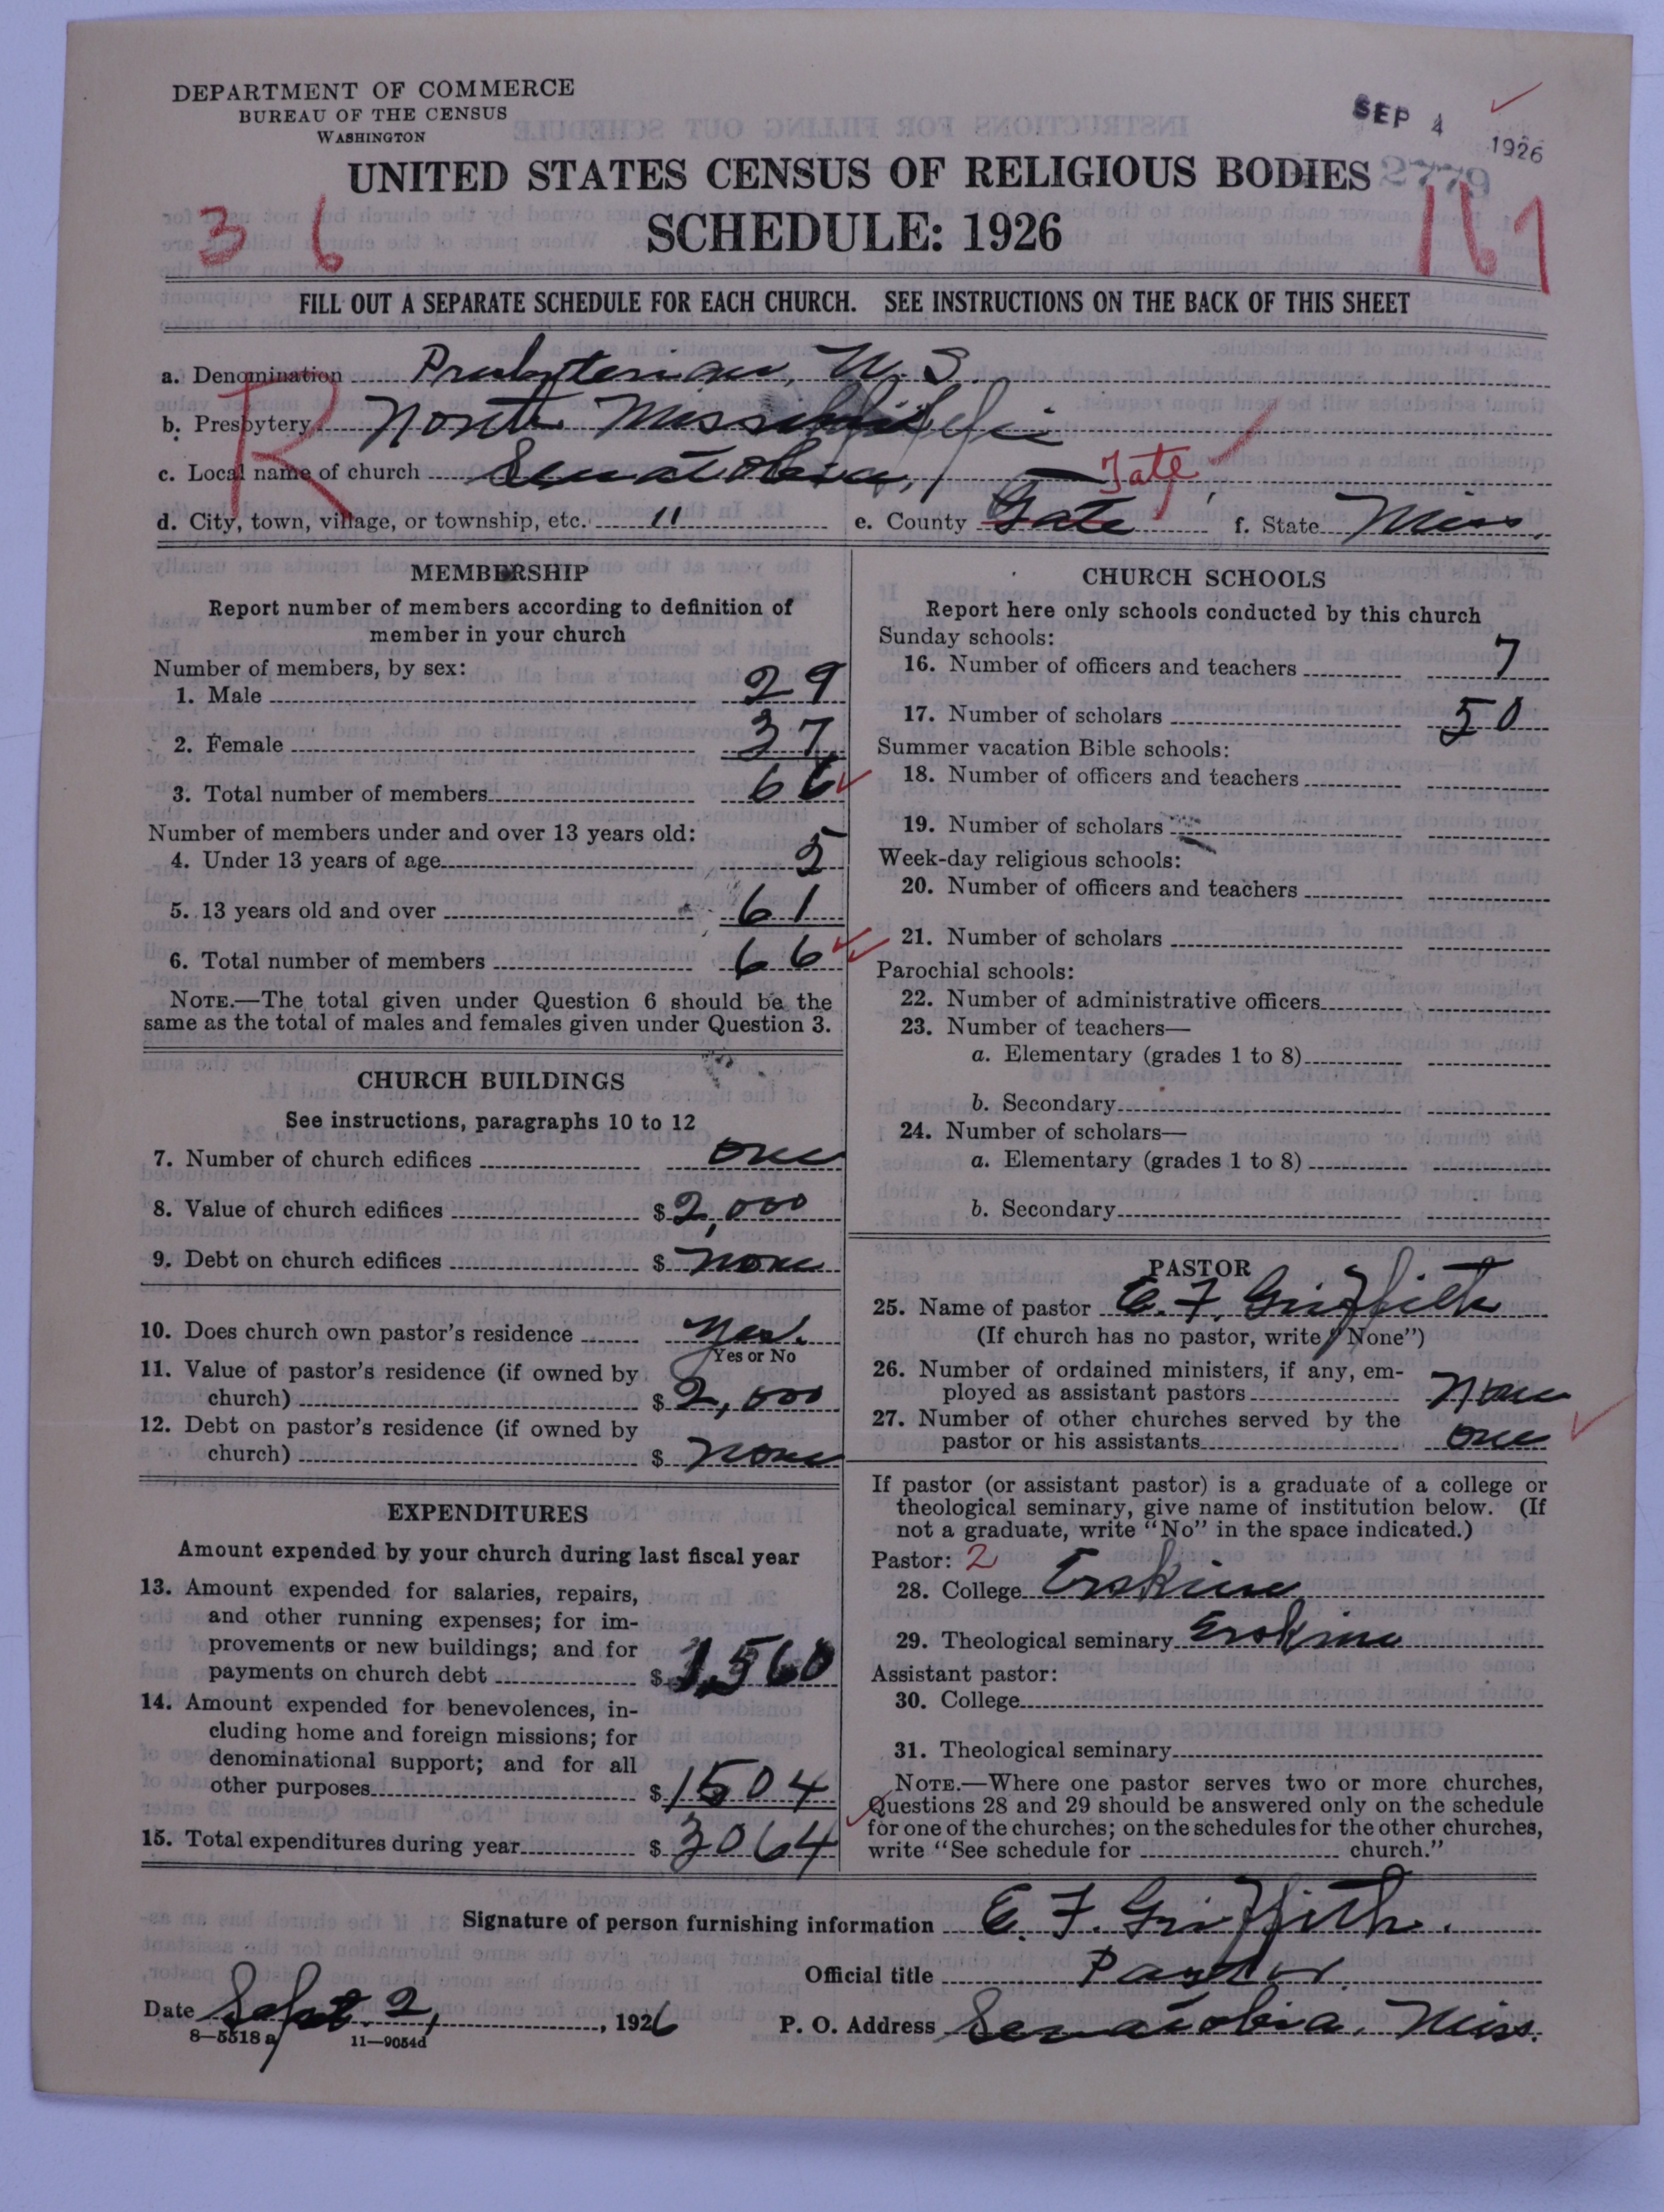 DEPARTMENT OF COMMERCE
BUREAU OF THE CENSUS
WASHINGTON
SEP 4 1926
2779
UNITED STATES CENSUS OF RELIGIOUS BODIES
SCHEDULE: 1926
36
167
FILL OUT A SEPARATE SCHEDULE FOR EACH CHURCH. SEE INSTRUCTIONS ON THE BACK OF THIS SHEET
R
a. Denomination Presbyterian, U.S.
b. Presbytery North Mississippi
c. Local name of church Senatobia, — Tate
d. City, town, village, or township, etc. " e. County Tate f. State Miss.
MEMBERSHIP
Report number of members according to definition of
member in your church
Number of members, by sex:
1. Male 29
2. Female 37
3. Total number of members 66
Number of members under and over 13 years old:
4. Under 13 years of age 5
5. 13 years old and over 61
6. Total number of members 66
NOTE.—The total given under Question 6 should be the
same as the total of males and females given under Question 3.
CHURCH BUILDINGS
See instructions, paragraphs 10 to 12
7. Number of church edifices one
8. Value of church edifices $ 2,000
9. Debt on church edifices $ none
10. Does church own pastor's residence yes.
Yes or No
11. Value of pastor's residence (if owned by
church) $ 2,000
12. Debt on pastor's residence (if owned by
church) $ none
EXPENDITURES
Amount expended by your church during last fiscal year
13. Amount expended for salaries, repairs,
and other running expenses; for im-
provements or new buildings; and for
payments on church debt $ 1,560
14. Amount expended for benevolences, in-
cluding home and foreign missions; for
denominational support; and for all
other purposes $ 1504
15. Total expenditures during year $ 3064
CHURCH SCHOOLS
Report here only schools conducted by this church
Sunday schools:
16. Number of officers and teachers 7
17. Number of scholars 50
Summer vacation Bible schools:
18. Number of officers and teachers
19. Number of scholars
Week-day religious schools:
20. Number of officers and teachers
21. Number of scholars
Parochial schools:
22. Number of administrative officers
23. Number of teachers—
a. Elementary (grades 1 to 8)
b. Secondary
24. Number of scholars—
a. Elementary (grades 1 to 8)
b. Secondary
PASTOR
25. Name of pastor E. F. Griffith
(If church has no pastor, write "None")
26. Number of ordained ministers, if any, em-
ployed as assistant pastors None
27. Number of other churches served by the
pastor or his assistants one
If pastor (or assistant pastor) is a graduate of a college or
theological seminary, give name of institution below. (If
not a graduate, write "No" in the space indicated.)
Pastor: 2
28. College Erskine
29. Theological seminary Erskine
Assistant pastor:
30. College
31. Theological seminary
NOTE.—Where one pastor serves two or more churches,
Questions 28 and 29 should be answered only on the schedule
for one of the churches; on the schedules for the other churches,
write "See schedule for church."
Signature of person furnishing information E. F. Griffith.
Official title Pastor
Date Sept. 2, 1926 P. O. Address Senatobia, Miss.
8—5518 a 11—9054d